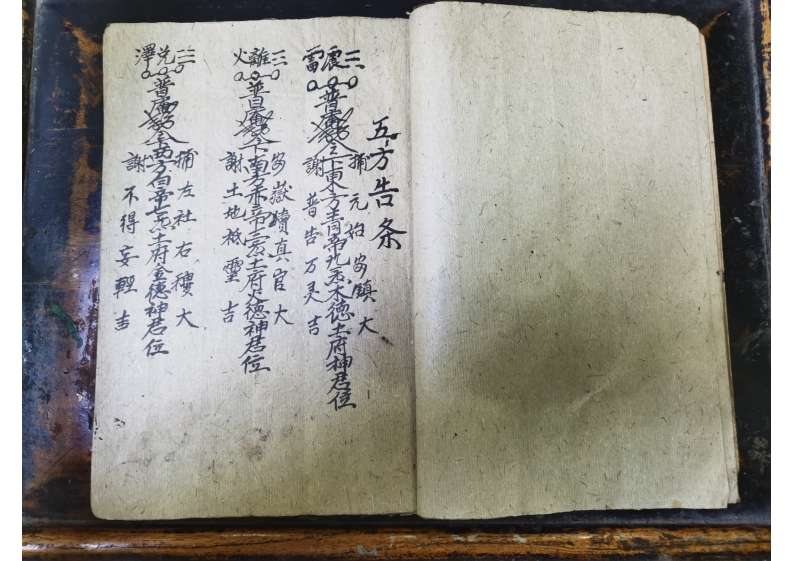 五方告条
捕元始安鎮大
三震
普庵勅令下東方青帝九炁木德土府神君位
雷
謝普告万灵吉
三離
安嶽瀆真官大
普庵勅令下南方赤帝三炁土府火德神君位
火
謝土地祇靈吉
三兌
捕左社右稷大
普庵勅令下西方白帝七炁土府金德神君位
澤
謝不得妄輕吉